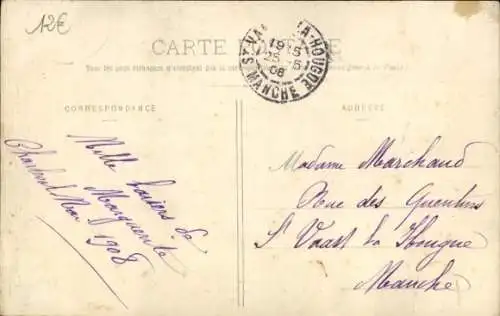 12€
CARTE POSTALE
ST VAAST-LA-HOUGUE
19 5
25 5
08
MANCHE
CORRESPONDANCE
ADRESSE
Mille baisers de
Marguerite
Mai 1908
Madame Marchand
Rue des Quentins
St Vaast la Hougue
Manche